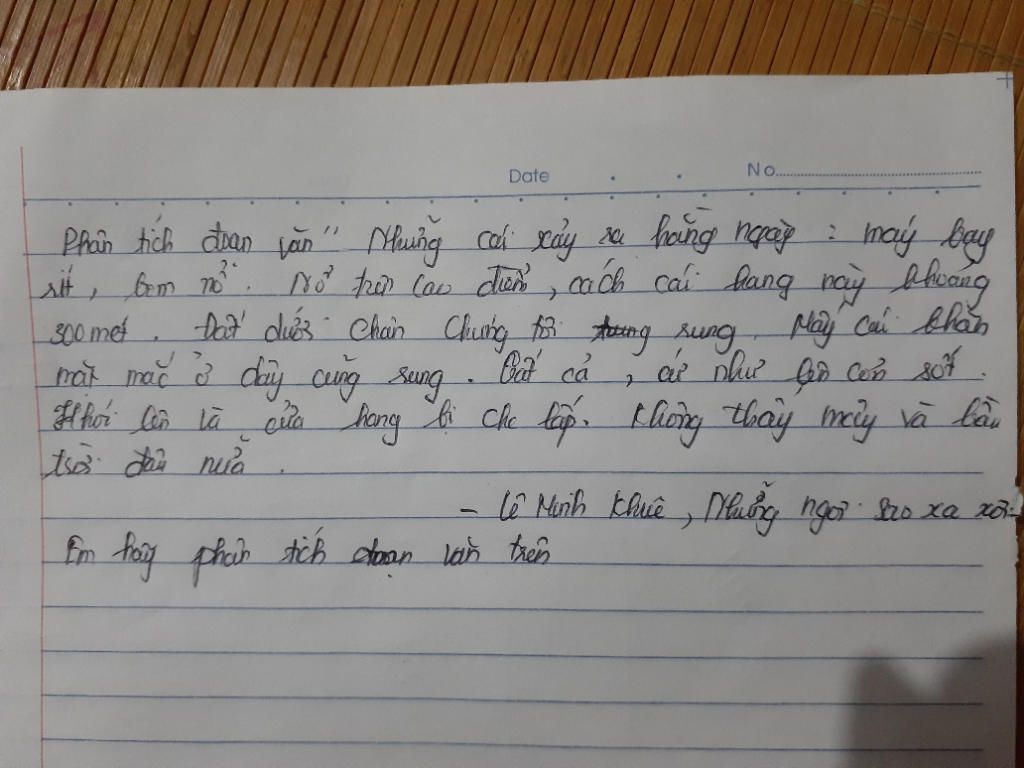 Date No
Phân tích đoạn văn" Những cái xảy ra hằng ngày : máy bay
rít, bom nổ. Nổ trên cao điểm, cách cái hang này khoảng
300 mét. Đất dưới chân chúng tôi rung. Mấy cái khăn
mặt mắc ở dây cũng rung. Tất cả, cứ như lên cơn sốt.
Khói lên và cửa hang bị che lấp. Không thấy mây và bầu
trời đâu nữa.
- Lê Minh Khuê, Những ngôi sao xa xôi
Em hãy phân tích đoạn văn trên